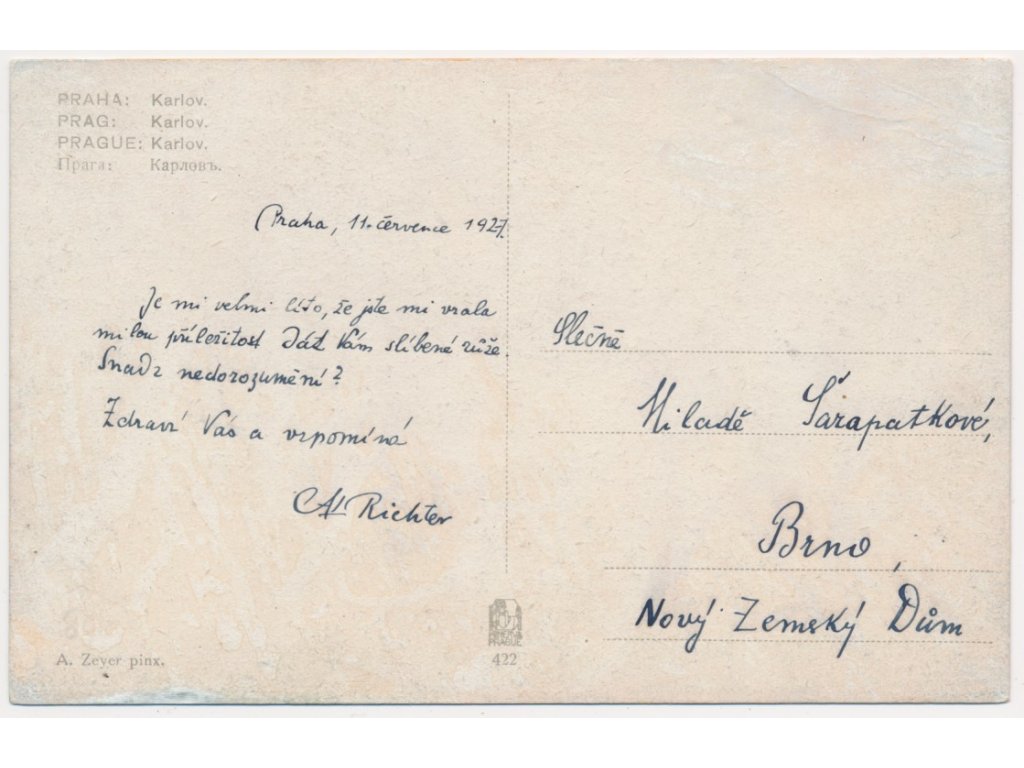 PRAHA: Karlov.
PRAG: Karlov.
PRAGUE: Karlov.
Прага: Карловъ.
Praha, 11. července 1927.
Je mi velmi líto, že jste mi vzala
milou příležitost Dát Vám slíbené růže.
Snad z nedorozumění?
Zdraví Vás a vzpomíná
Al Richter
Slečně
Miladě Šarapatkové,
Brno,
Nový Zemský Dům
A. Zeyer pinx.
PRAGUE
422